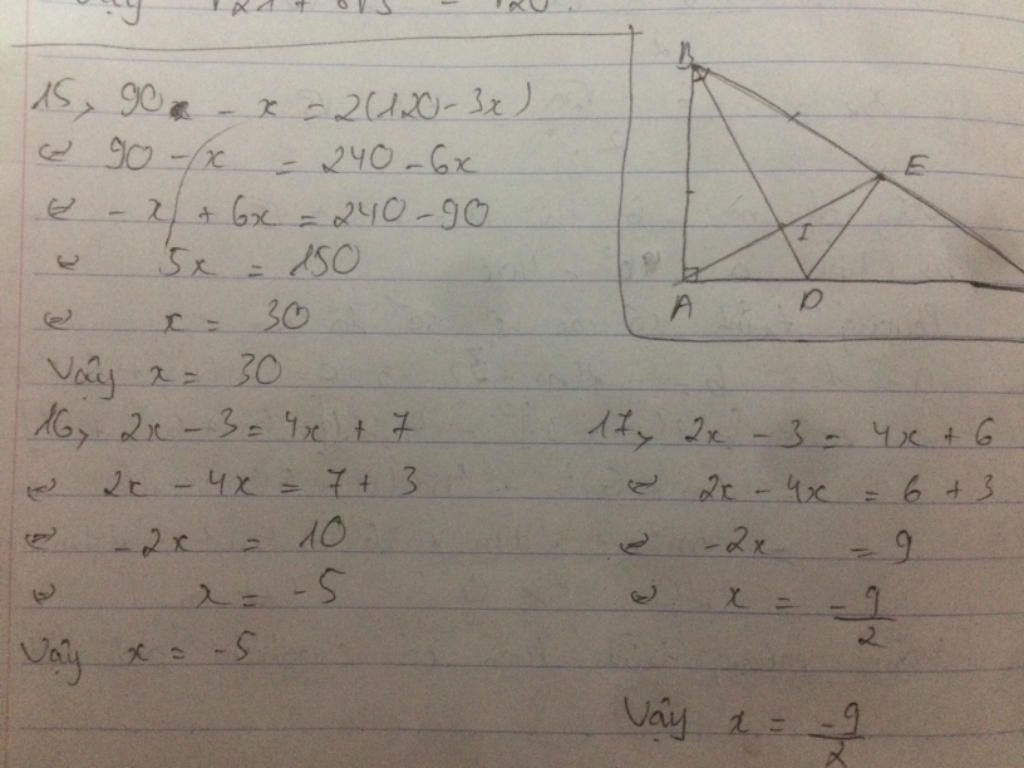 15, 90 - x = 2(120 - 3x)
⇔ 90 - x = 240 - 6x
⇔ - x + 6x = 240 - 90
⇔ 5x = 150
⇔ x = 30
Vậy x = 30
B
E
I
A
D
16, 2x - 3 = 4x + 7
⇔ 2x - 4x = 7 + 3
⇔ -2x = 10
⇔ x = -5
Vậy x = -5
17, 2x - 3 = 4x + 6
⇔ 2x - 4x = 6 + 3
⇔ -2x = 9
⇔ x = -9/2
Vậy x = -9/2